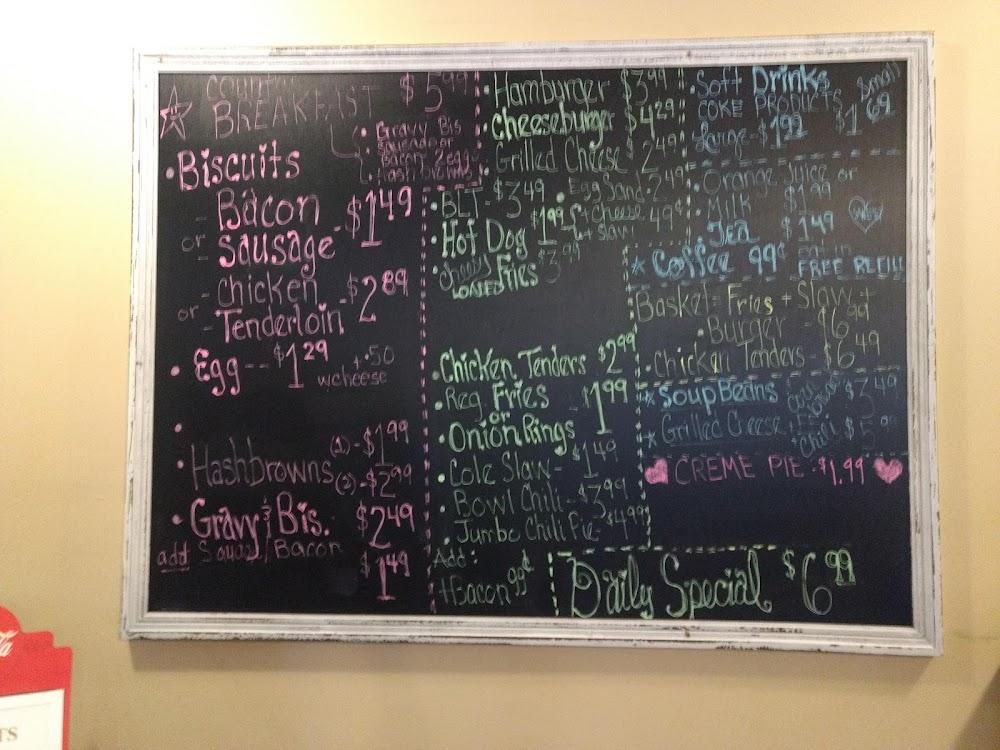 COUNTRY
BREAKFAST $5.99
Gravy Bis
Sausage or
Bacon 2 eggs
Hashbrowns
• Biscuits
- Bacon - $1.49
or - Sausage
- Chicken - $2.89
or - Tenderloin
• Egg -- $1.29 +.50
w cheese
•
• Hashbrowns (1)- $1.99
(2)- $2.99
• Gravy & Bis. $2.49
add Sausg / Bacon $1.49
• Hamburger $3.99
• Cheeseburger $4.29
• Grilled Cheese $2.49
• BLT - $3.49 • Egg Sand - 2.49
+ cheese 49¢
• Hot Dog $1.99 + Slaw
Fries $3.99
LOADED
• Chicken Tenders $2.99
• Reg. Fries - $1.99
or
• Onion Rings
• Cole Slaw - 1.49
• Bowl Chili - $3.99
• Jumbo Chili Pie - $4.99
Add:
+Bacon 99¢
• Soft Drinks
COKE PRODUCTS Small
Large - $1.99 $1.69
• Orange Juice or
• Milk $1.99
• Tea $1.49
* Coffee 99¢ FREE REFILL
Basket = Fries + Slaw +
• Burger - $6.99
• Chicken Tenders - $6.49
* Soup Beans $3.49
* Grilled Cheese + Chili $5.99
CREME PIE - $1.99
Daily Special $6.99
TS